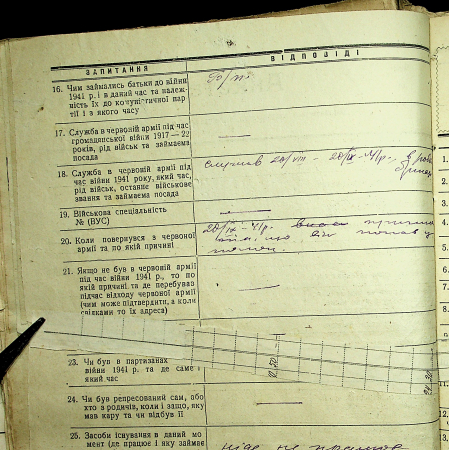 ЗАПИТАННЯ
ВІДПОВІДІ
16. Чим займались батьки до війни
1941 р. і в даний час та належ-
ність їх до комуністичної пар-
тії і з якого часу
17. Служба в червоній армії під час
громадянської війни 1917 — 22
років, рід військ та займаєма
посада
18. Служба в червоній армії під
час війни 1941 року, який час,
рід військ, останнє військове
звання та займаєма посада
служив 20/VIII - 20/IX - 41 р.
19. Військова спеціальність
№ (ВУС)
20. Коли повернувся з червоної
армії та по якій причині
20/IX - 41 р.
що він попав у
21. Якщо не був в червоній армії
під час війни 1941 р., то по
якій причині та де перебував
підчас відходу червоної армії
(чим може підтвердити, а коли
свідками то їх адреса)
23. Чи був в партизанах
війни 1941 р. та де саме і
який час
24. Чи був репресований сам, або
хто з родичів, коли і защо, яку
мав кару та чи відбув її
25. Засоби існування в даний мо-
мент (де працює і яку займає
ніде не працює